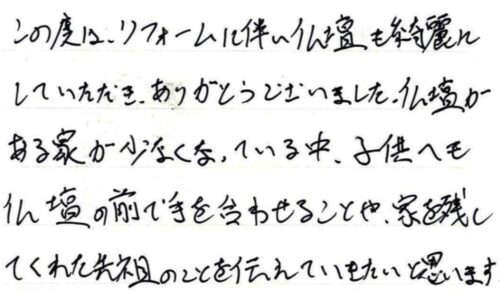 この度は、リフォームに伴い仏壇も綺麗に
していただき、ありがとうございました。仏壇が
ある家が少なくなっている中、子供へも
仏壇の前で手を合わせることや、家を残し
てくれた先祖のことを伝えていきたいと思います